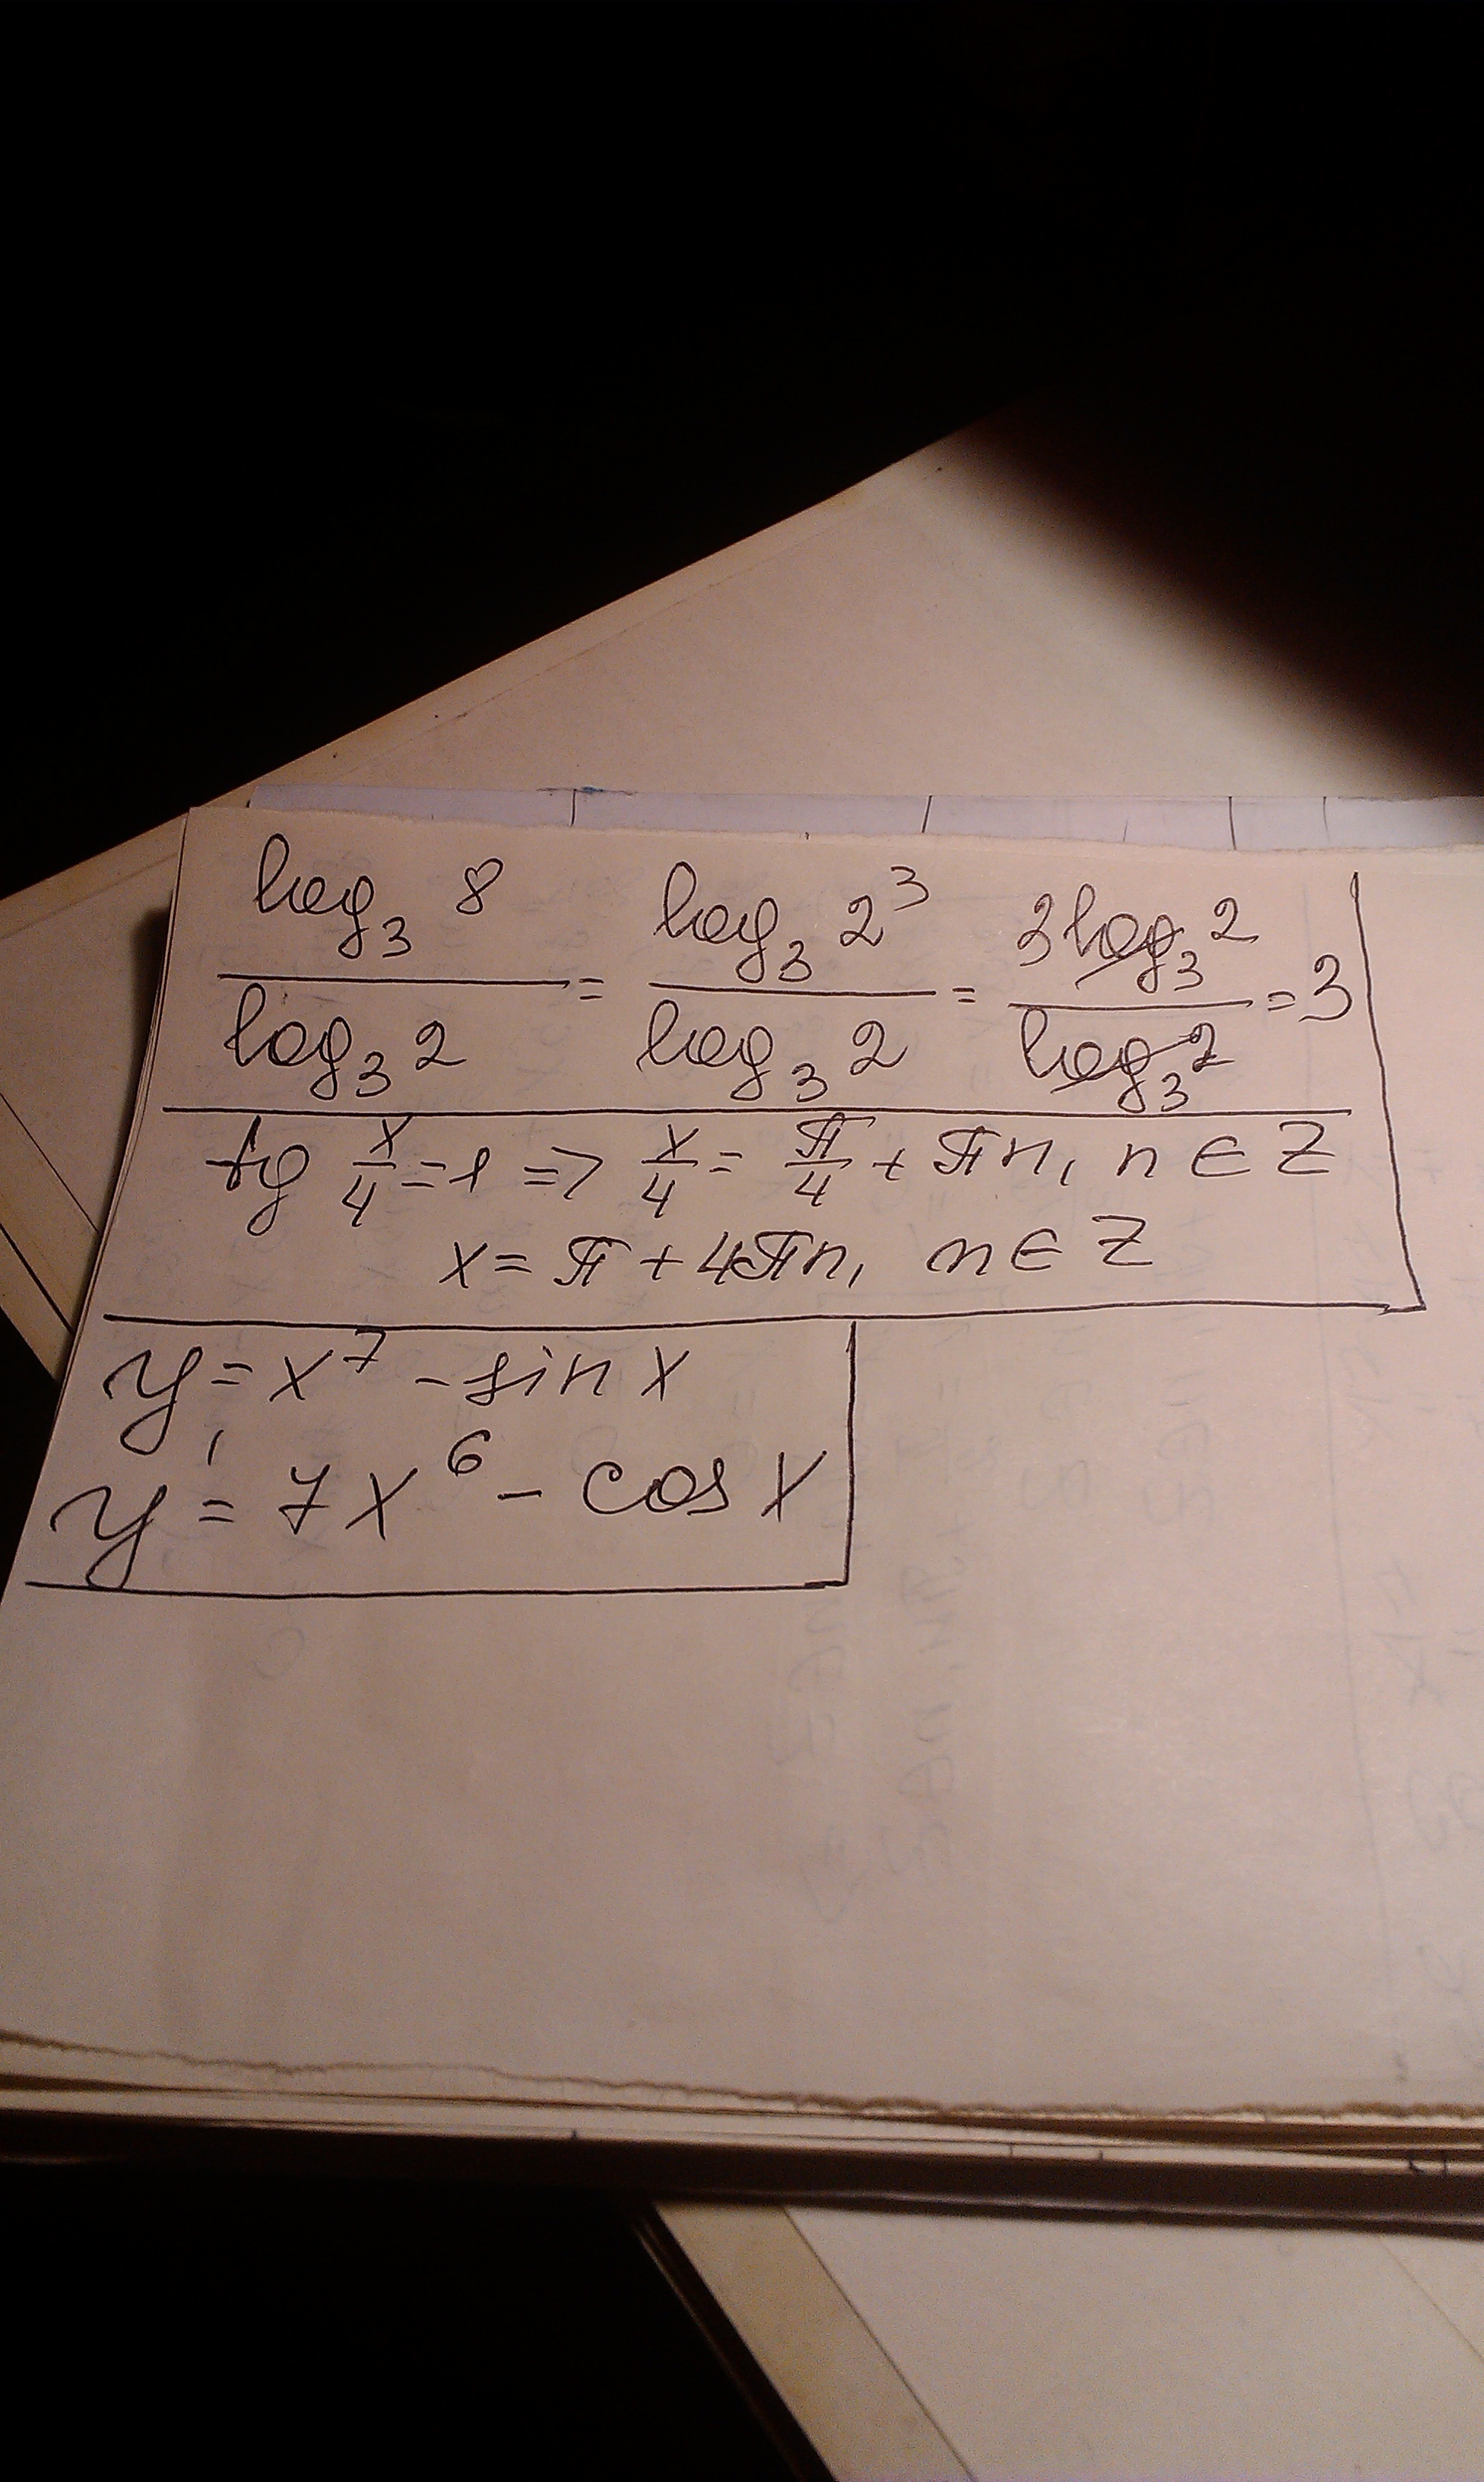 log₃ 8 / log₃ 2 = log₃ 2³ / log₃ 2 = 3 log₃ 2 / log₃ 2 = 3
tg x/4 = 1 => x/4 = π/4 + πn, n ∈ Z
x = π + 4πn, n ∈ Z
y = x⁷ - sin x
y' = 7x⁶ - cos x